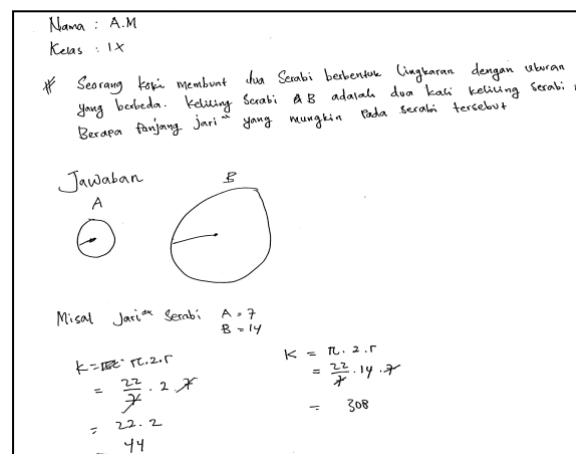 Nama : A.M
Kelas : IX
# Seorang koki membuat dua Serabi berbentuk lingkaran dengan ukuran
yang berbeda. Keliling Serabi B adalah dua kali keliling Serabi
Berapa panjang jari" yang mungkin pada serabi tersebut
Jawaban
A
B
Misal Jari" Serabi A = 7
B = 14
K = π.2.r
= 22/7 . 2 . 7
= 22.2
= 44
K = π. 2. r
= 22/7 . 14 . 7
= 308